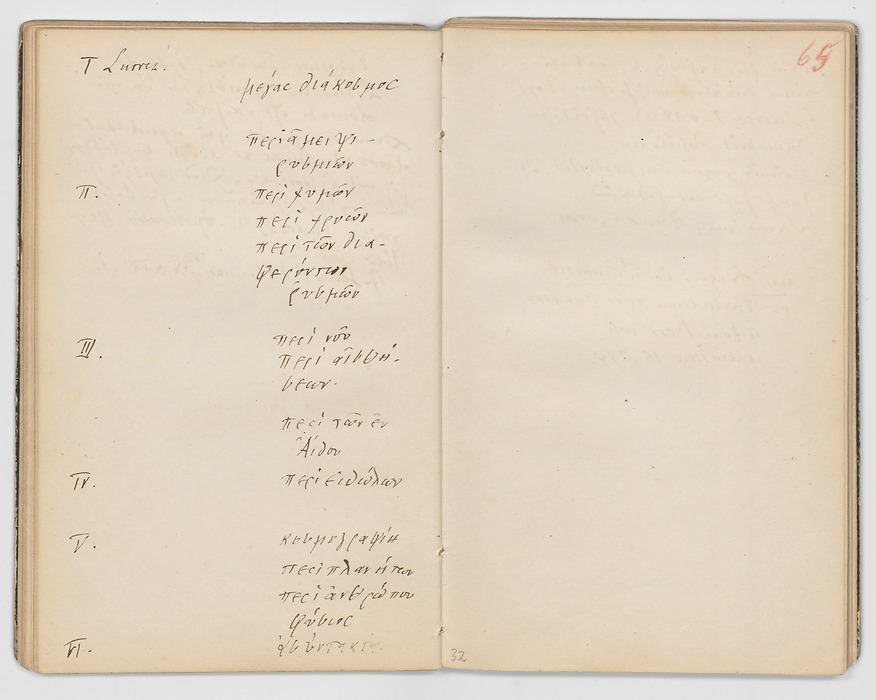 I Lucrez.
μέγας διάκοσμος
περὶ ἀμειψι-
ρυσμιῶν
II. περὶ χυμῶν
περὶ χροῶν
περὶ τῶν δια-
φερόντων
ῥυσμῶν
περὶ νοῦ
III. περὶ αἰσθή-
σεων.
περὶ τῶν ἐν
Ἅιδου
IV. περὶ εἰδώλων
V. κοσμογραφίη
περὶ πλανήτων
περὶ ἀνθρώπου
φύσιος
VI. ἀσύντακτα.
65
32